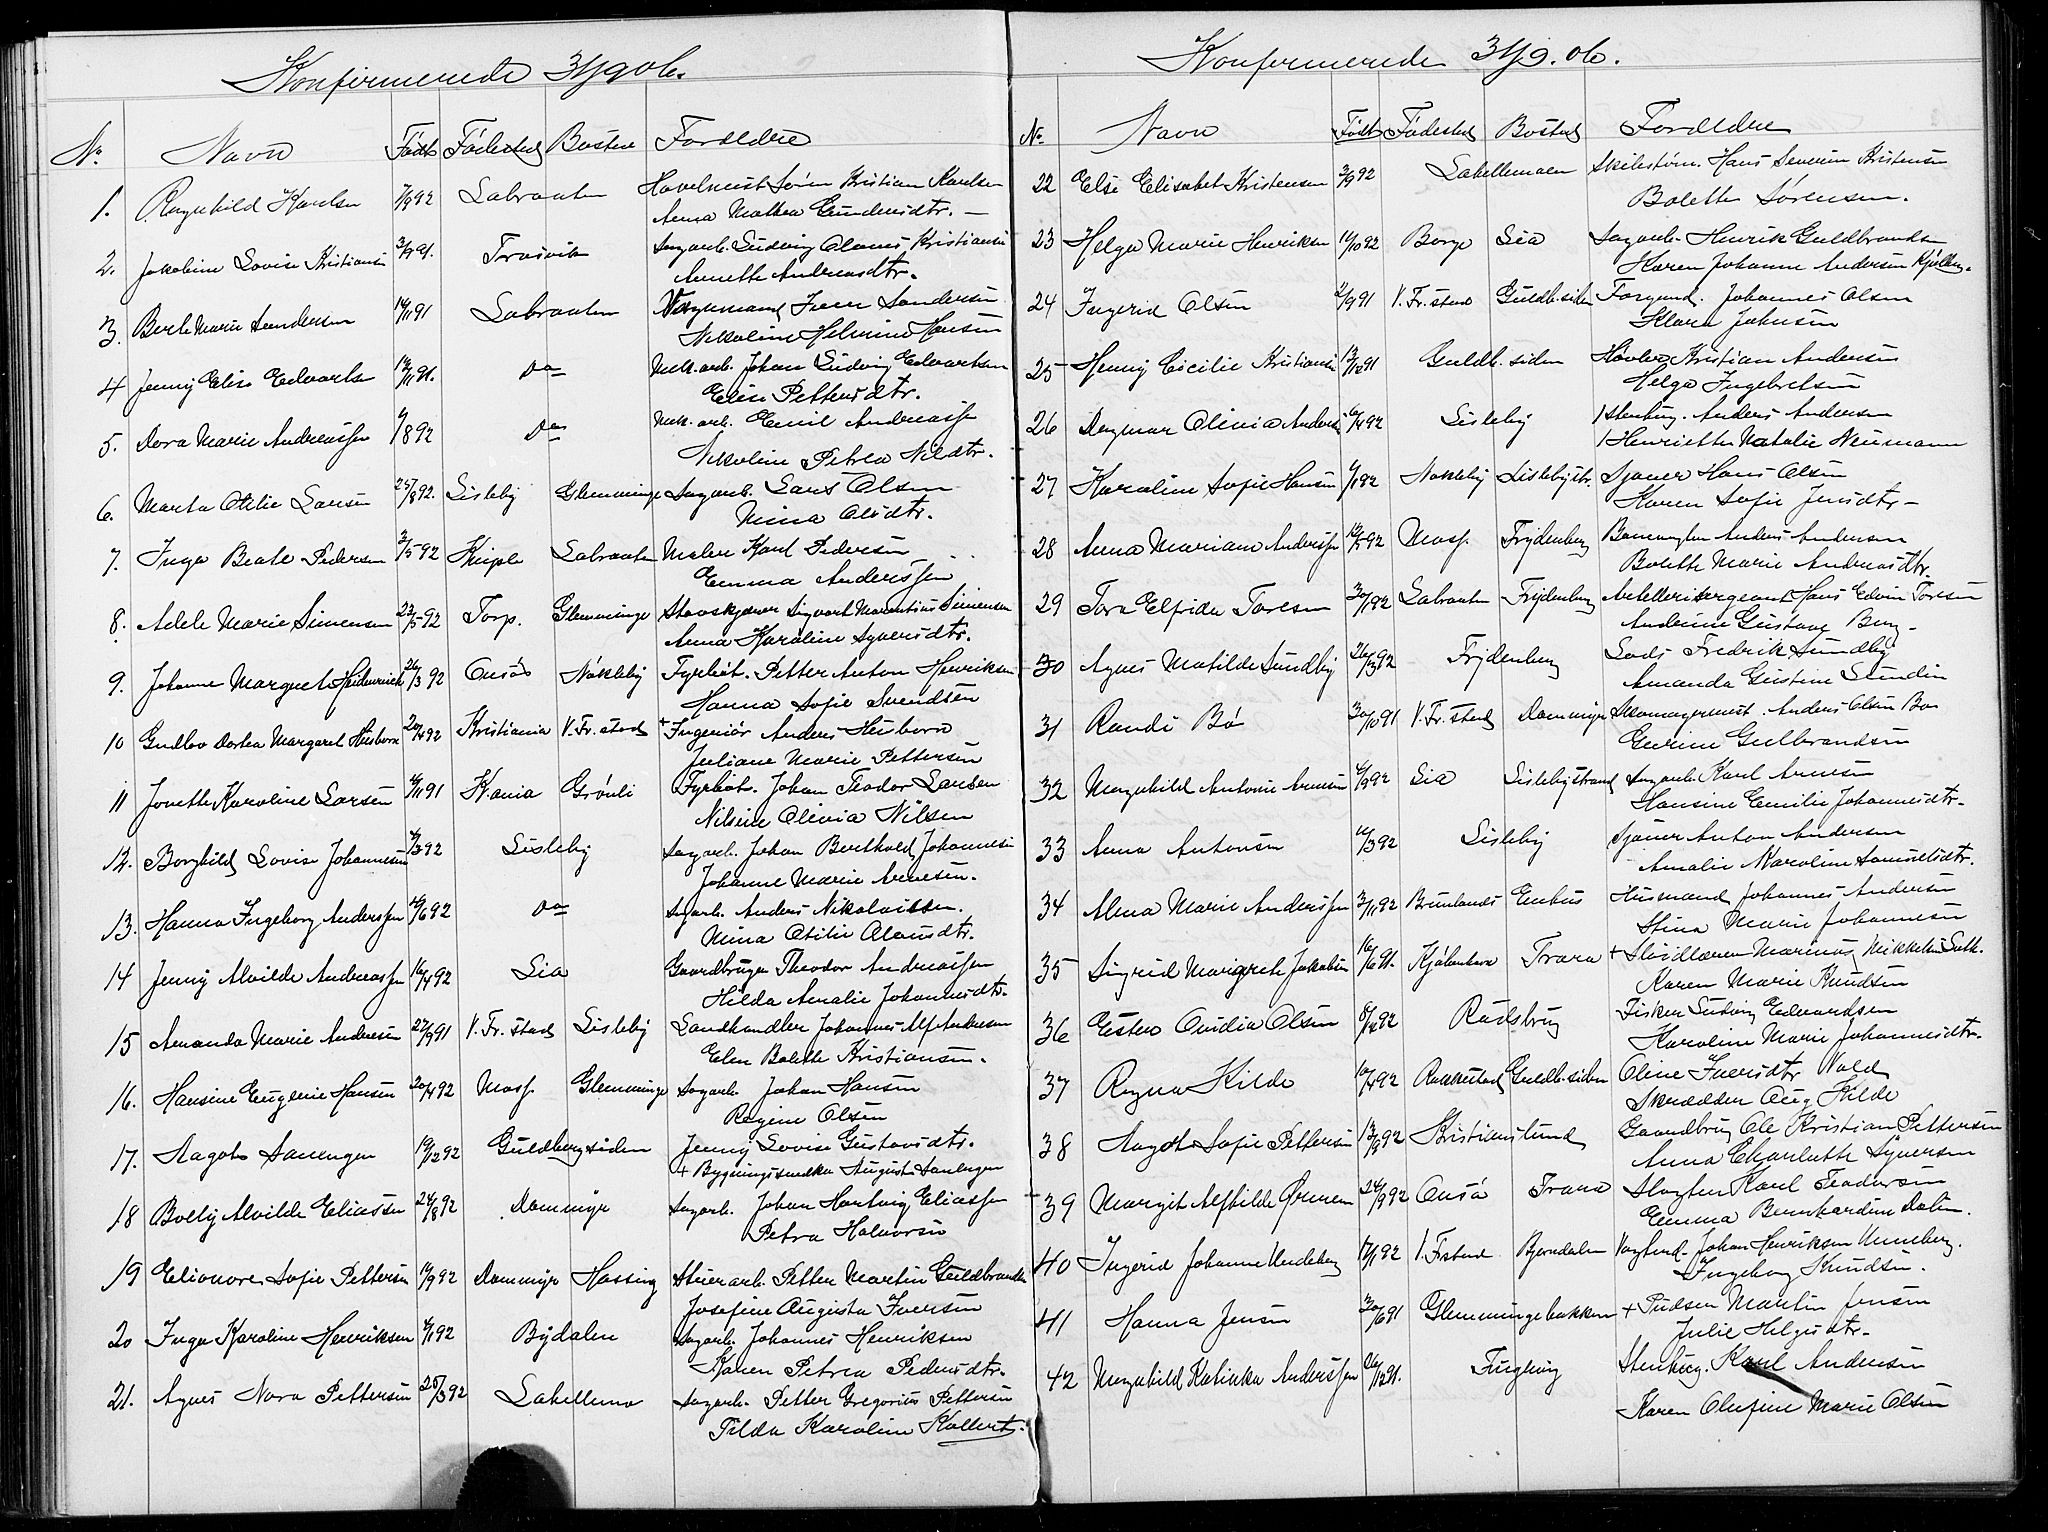 Konfirmerede 3/9 06.
No. Navn Født Fødested Bosted Forældre
1. Ragnhild Karlsen 7/9 92 Labraaten Høvelmest. Søren Kristian Karlsen
Anna Mathea Gundersdtr. —
2. Jakobine Lovise Kristiansen 3/9 91. Trosvik Sagarb. Ludvig Olaus Kristiansen
Annette Andreasdtr.
3. Berte Marie Sandersen 14/11 91 Labraaten Vognmand Iver Sandersen
Nikoline Helmine Hansen
4 Jenny Elise Edvartsen 13/11 91. Do Mek. arb. Johan Ludvig Edvartsen
Elise Pettersdtr.
5. Dora Marie Andreassen 4/8 92 Do Mek. arb. Emil Andreassen
Nikoline Petrea Nilsdtr.
6. Marta Otilie Larsen 25/8 92. Lisleby Glemminge Sagarb. Lars Olsen
Mina Olsdtr.
7. Inga Beate Pedersen 3/5 92 Labraaten Maler Karl Pedersen
Emma Anderssen
8. Adele Marie Simensen 23/5 92 Torp. Glemminge Stavskjærer Sigvart Marentius Simensen
Anna Karoline Syversdtr.
9. Johanne Margret Heidenreich 26/3 92 Onsø Nøkleby Fyrbøt. Petter Anton Henriksen
Hanna Sofie Svendsen
10 Gudlov Dortea Margaret Heiborn 20/4 92 Kristiania V. Fr. stad + Ingeniør Anders Heiborn
Juliane Marie Pettersen
11 Jonette Karoline Larsen 4/11 91 K.ania Grønli Fyrbøt. Johan Teodor Larsen
Nilsine Olivia Nilsen
12. Borghild Lovise Johannesen 4/3 92 Lisleby Sagarb. Johan Berthold Johannesen
Johanne Marie Arnesen.
13. Hanna Ingeborg Anderssen 12/6 92 Do Sagarb. Anders Nikolaissen.
Mina Otilie Olausdtr.
14 Jenny Alvilde Andreassen 16/4 92 Lia Gaardbruger Theodor Andreassen
Hilda Amalie Johannesdtr.
15 Amanda Marie Andersen 27/9 91 V. Fr. stad Lisleby Landhandler Johannes Alf Andersen
Elen Bolette Kristiansen.
16. Hansine Eugenie Hansen 20/4 92 Moss. Glemminge Sagarb. Johan Hansen
Regine Olsen
17. Aagot Sanengen 19/12 92 Guldbergsiden Jenny Lovise Gustavsdtr.
+ Bygningssnedker August Sanengen
18 Bolly Alvilde Eliassen 24/8 92 Dammyr Sagarb. Johan Hartvig Eliassen
Petra Halvorsen
19 Elionore Sofie Pettersen 14/9 92 Dammyr Hassing Stuerarb. Petter Martin Guldbrandsen
Josefine Augusta Iversen
20 Inga Karoline Henriksen 4/1 92 Bydalen Sagarb. Johannes Henriksen
Karen Petrea Pedersdtr.
21. Agnes Nora Pettersen 25/3 92 Lahellemo Sagarb. Petter Gregorius Pettersen
Tilda Karoline Kollerts.
Konfirmerede 3/9. 06.
No Navn Født Fødested Bosted Forældre
22 Else Elisabet Kristensen 3/9 92 Lahellemoen Skibstøm. Hans Severin Kristensen
Bolette Sørensen.
23 Helga Marie Henriksen 14/10 92 Borge Lia Sagarb. Henrik Guldbrandsen
Karen Johanne Andersen
24 Ingerid Olsen 2/9 91 V. Fr. stad Guldb. siden Johannes Olsen
Klara Johnsen
25 Henny Cicilie Kristiansen 13/12 91 Guldb. siden Høvler Kristian Andersen
Helga Ingebretsen
26 Dagmar Olivia Andersen 16/4 92 Lisleby Stenhug. Anders Andersen
Henriette Natalie Neumann
27 Karoline Sofie Hansen 4/1 92 Nøkleby Lislebystr. Sjauer Hans Olsen
Karen Sofie Jensdtr —
28 Anna Mariane Anderssen 12/5 92 Moss. Frydenberg Anders Andersen
Bolette Marie Andreasdtr.
29 Tora Elfrida Toresen 30/1 92 Labraaten Frydenberg Artellerisergeant Hans Edvin Toresen
Andrine Gustava Berg —
30 Agnes Matilde Sundby 26/12 92 Frydenberg Lods Fredrik Sundby
Amanda Gustine Lundin
31 Randi Bø 30/10 91 V. Fr. stad Dammyr Skomagermest. Anders Olsen Bø
Gurine Gulbrandsen
32 Magnhild Antonie Arnesen 4/9 92 Lia Lislebystrand Sagarb. Karl Arnesen
Hansine Emilie Johannesdtr.
33 Anna Antonsen 11/3 92 Lisleby Sjauer Anton Andersen
Amalie Karoline Samuelsdtr.
34 Alma Marie Anderssen 3/11 92 Brunlands Enhus Husmand Johannes Andersen
Stina Marie Johannesen
35 Singrid Margrete Jakobsen 16/6 91. Kjøbenhavn Trara + Marinus Mikkelsen
Karen Marie Knudsen
36 Ester Ovidia Olsen 8/12 92 Rødsbrug Fisker Ludvig Edvardsen
Karoline Marie Johannesdtr.
37 Ragna Kilde 10/4 92 Rakkestad Guldb. siden Oline Iversdtr Vold
Skrædder Aug. Kilde
38 Aagot Sofie Pettersen 13/9 92 Kristianslund Gaardbrug Ole Kristian Pettersen
Anna Charlotte Syversen
39 Margit Alfhilde Ørmen 24/9 92 Onsø Trara Slagter Karl Teodorsen
Emma Bernhardine Dalen.
40 Ingerid Johanne Unneberg 17/1 92 V. Frstad Bjørndalen Johan Henriksen Unneberg.
Ingeborg Knudsen.
41 Hanna Jensen 30/6 91 Glemmingebakken + Pudser Martin Jensen
Julie Helgesdtr.
42 Magnhild Katinka Anderssen 26/12 91. Fuglevig Stenhug. Karl Andersen
Karen Olufine Marie Olsen